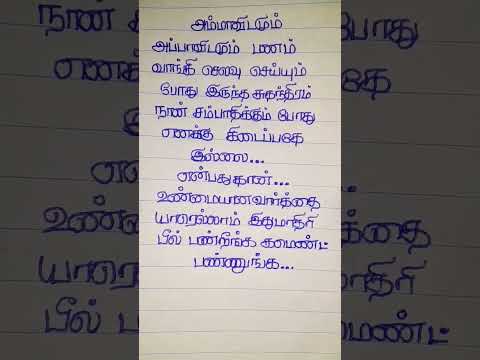 அம்மாவிடமும்
அப்பாவிடமும் பணம்
வாங்கி செலவு செய்யும்
போது இருந்த சுதந்திரம்
நான் சம்பாதிக்கும் போது
எனக்கு கிடைப்பதே
இல்லை...
என்பதுதான்...
உண்மையானவார்த்தை
யாரெல்லாம் இதுமாதிரி
பீல் பண்றீங்க கமெண்ட்
பண்ணுங்க...